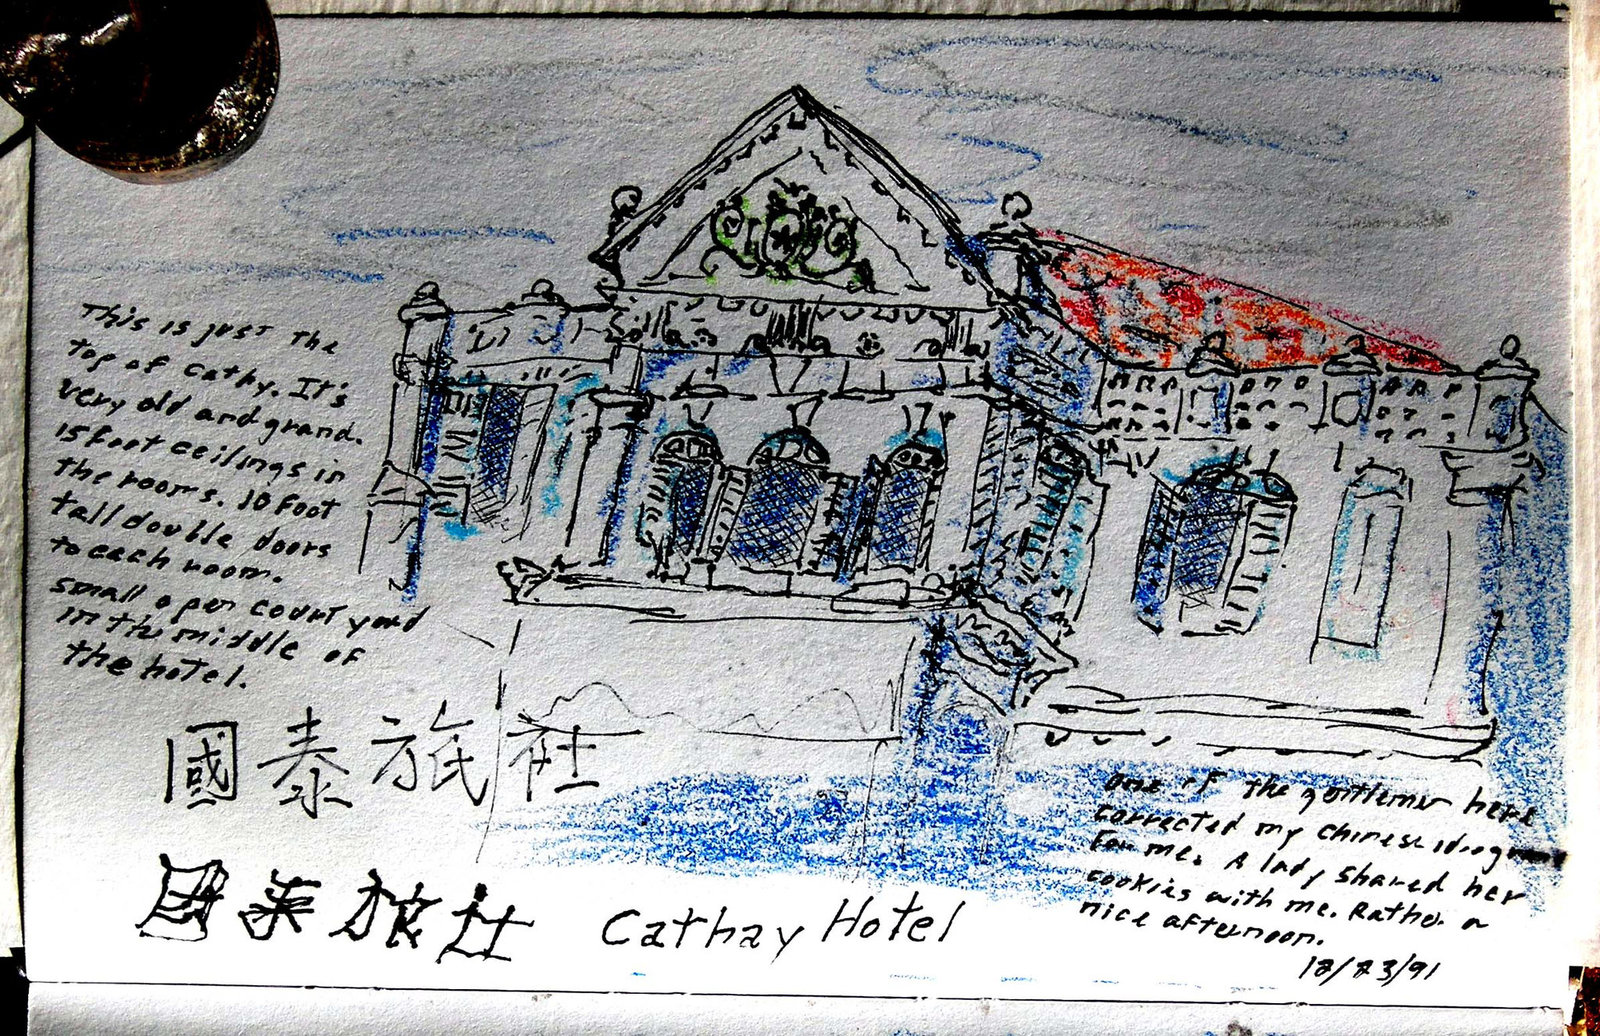 This is just the
top of Cathy. It's
very old and grand.
15 foot ceilings in
the rooms. 10 foot
tall double doors
to each room.
small open court yard
in the middle of
the hotel.
國泰旅社
國泰旅社
Cathay Hotel
One of the gentlemen here
corrected my chinese ideogram
for me. A lady shared her
cookies with me. Rather a
nice afternoon.
12/23/91